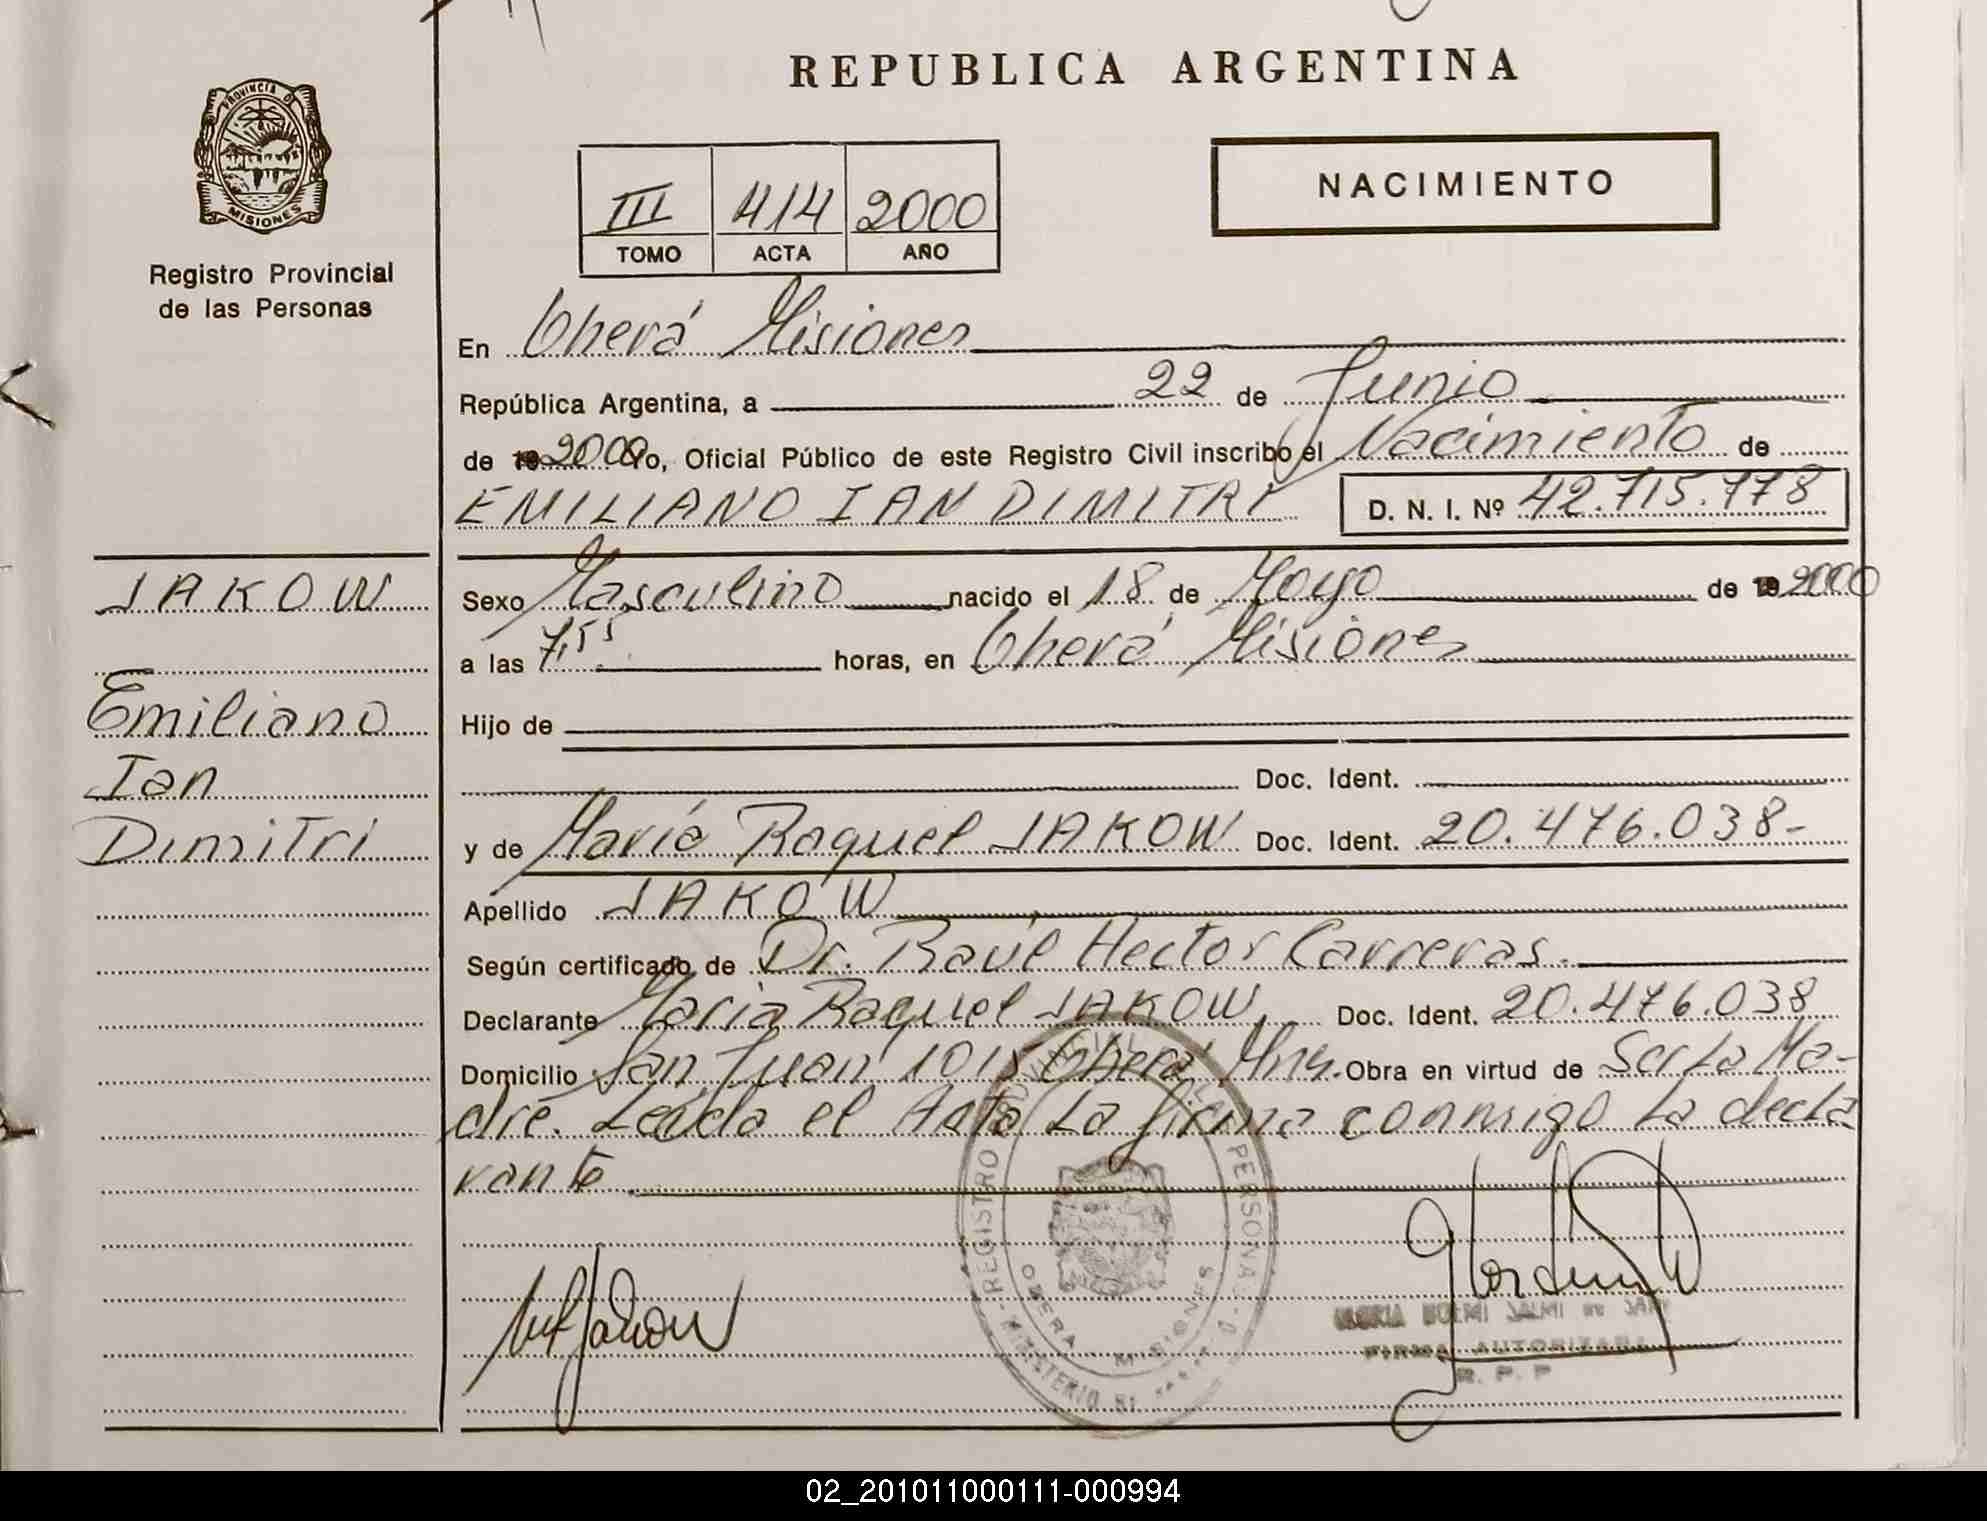 REPUBLICA ARGENTINA
PROVINCIA DE
MISIONES
Registro Provincial
de las Personas
III 414 2000
TOMO ACTA AÑO
NACIMIENTO
En Oberá Misiones
República Argentina, a 22 de Junio
de 2000 Yo, Oficial Público de este Registro Civil inscribo el Nacimiento de
EMILIANO IAN DIMITRI D. N. I. Nº 42.715.778
JAKOW
Emiliano
Ian
Dimitri
Sexo Masculino nacido el 18 de Mayo de 2000
a las 7,55 horas, en Oberá Misiones
Hijo de
Doc. Ident.
y de María Raquel JAKOW Doc. Ident. 20.476.038-
Apellido JAKOW
Según certificado de Dr. Raúl Hector Carreras.
Declarante Maria Raquel JAKOW Doc. Ident. 20.476.038
Domicilio San Juan 1015 Oberá Mns. Obra en virtud de Ser La Ma-
dre. Leída el Acta La firma conmigo La decla
rante
REGISTRO PROVINCIAL PERSONAS
OBERA MISIONES
MINISTERIO
GLORIA NOEMI
FIRMA AUTORIZADA
R. P. P
02_201011000111-000994